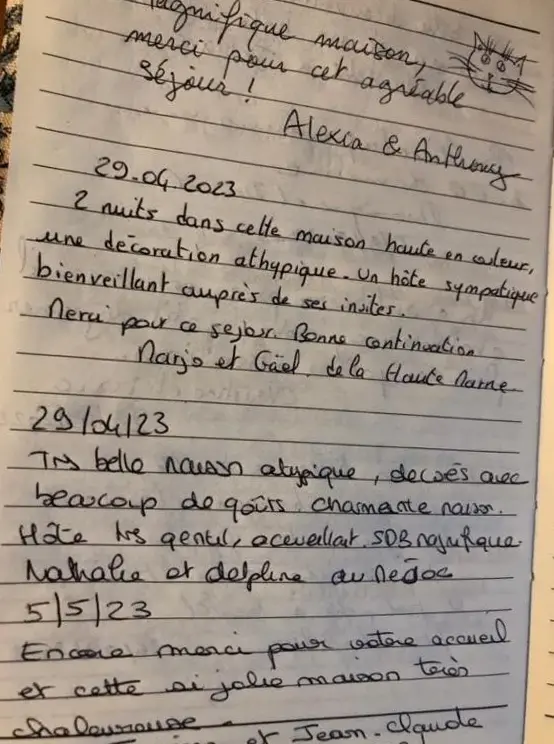 magnifique maison,
merci pour cet agréable
séjour !
Alexia & Anthony
29.04.2023
2 nuits dans cette maison haute en couleur,
une décoration athypique. Un hôte sympatique
bienveillant auprès de ses invites.
Merci pour ce sejour. Bonne continuation
Marjo et Gaël de la Haute Marne
29/04/23
Très belle maison atypique, decorés avec
beaucoup de goûts charmante maison.
Hôte très gentil, acceuillant. SDB magnifique.
Nathalie et delphine du Médoc
5/5/23
Encore merci pour votre accueil
et cette si jolie maison très
chaleureuse.
et Jean-Claude